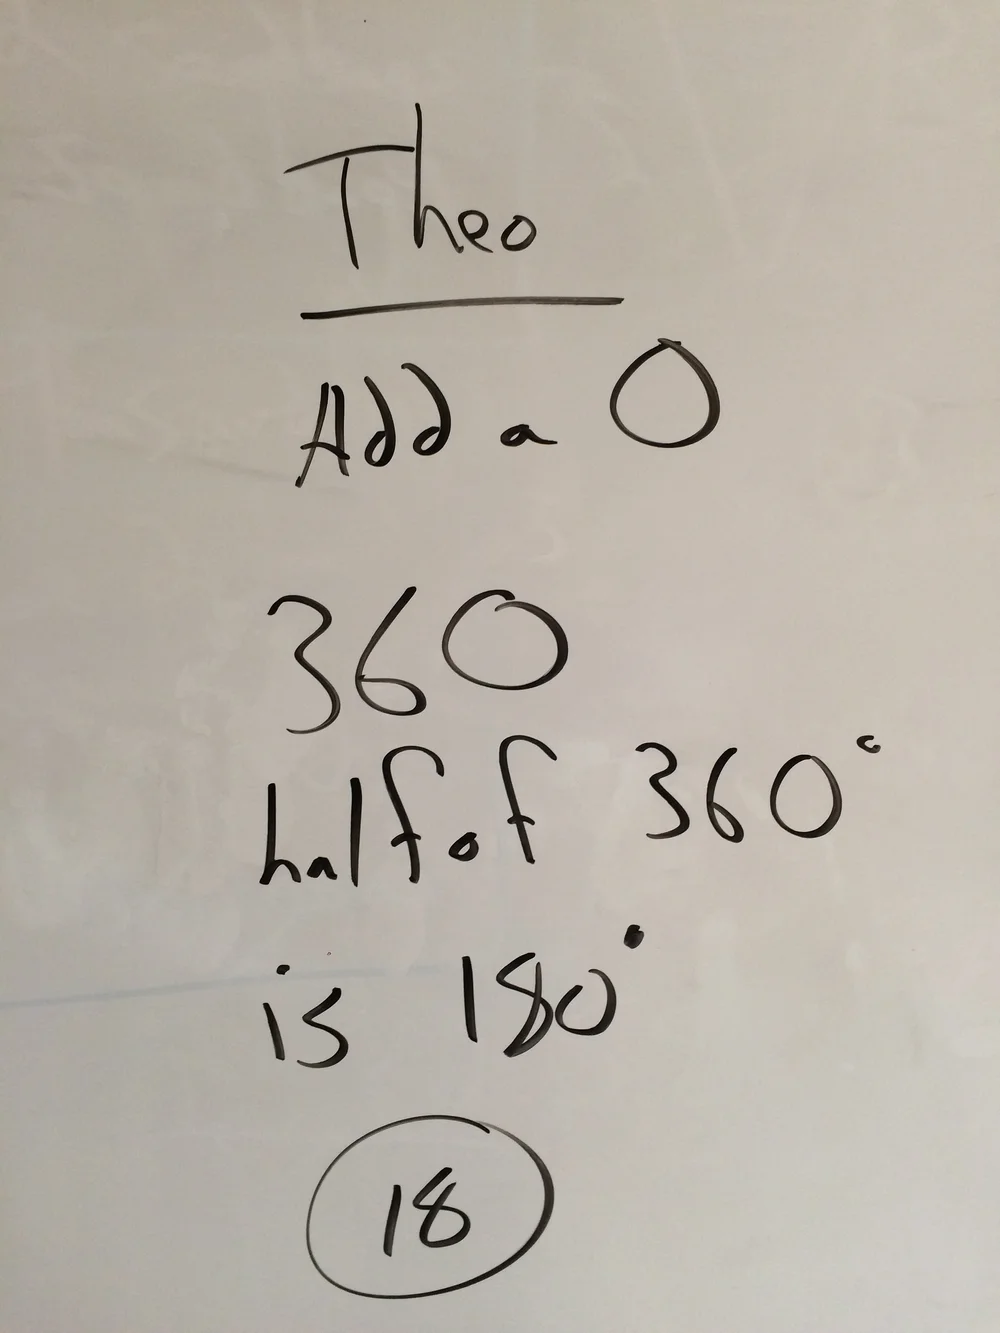 Theo
Add a 0
360
half of 360°
is 180°
18